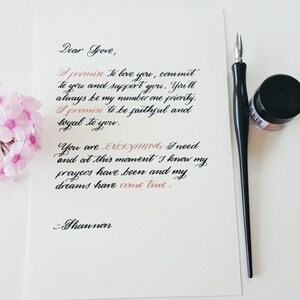 Dear Love,
I promise to love you, commit
to you and support you. You'll
always be my number one priority.
I promise to be faithful and
loyal to you.
You are EVERYTHING I need
and at this moment I know my
prayers have been and my
dreams have come true.
~Shannon